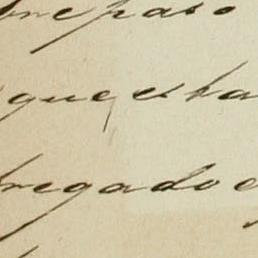 bre paso
que esta
bregado e